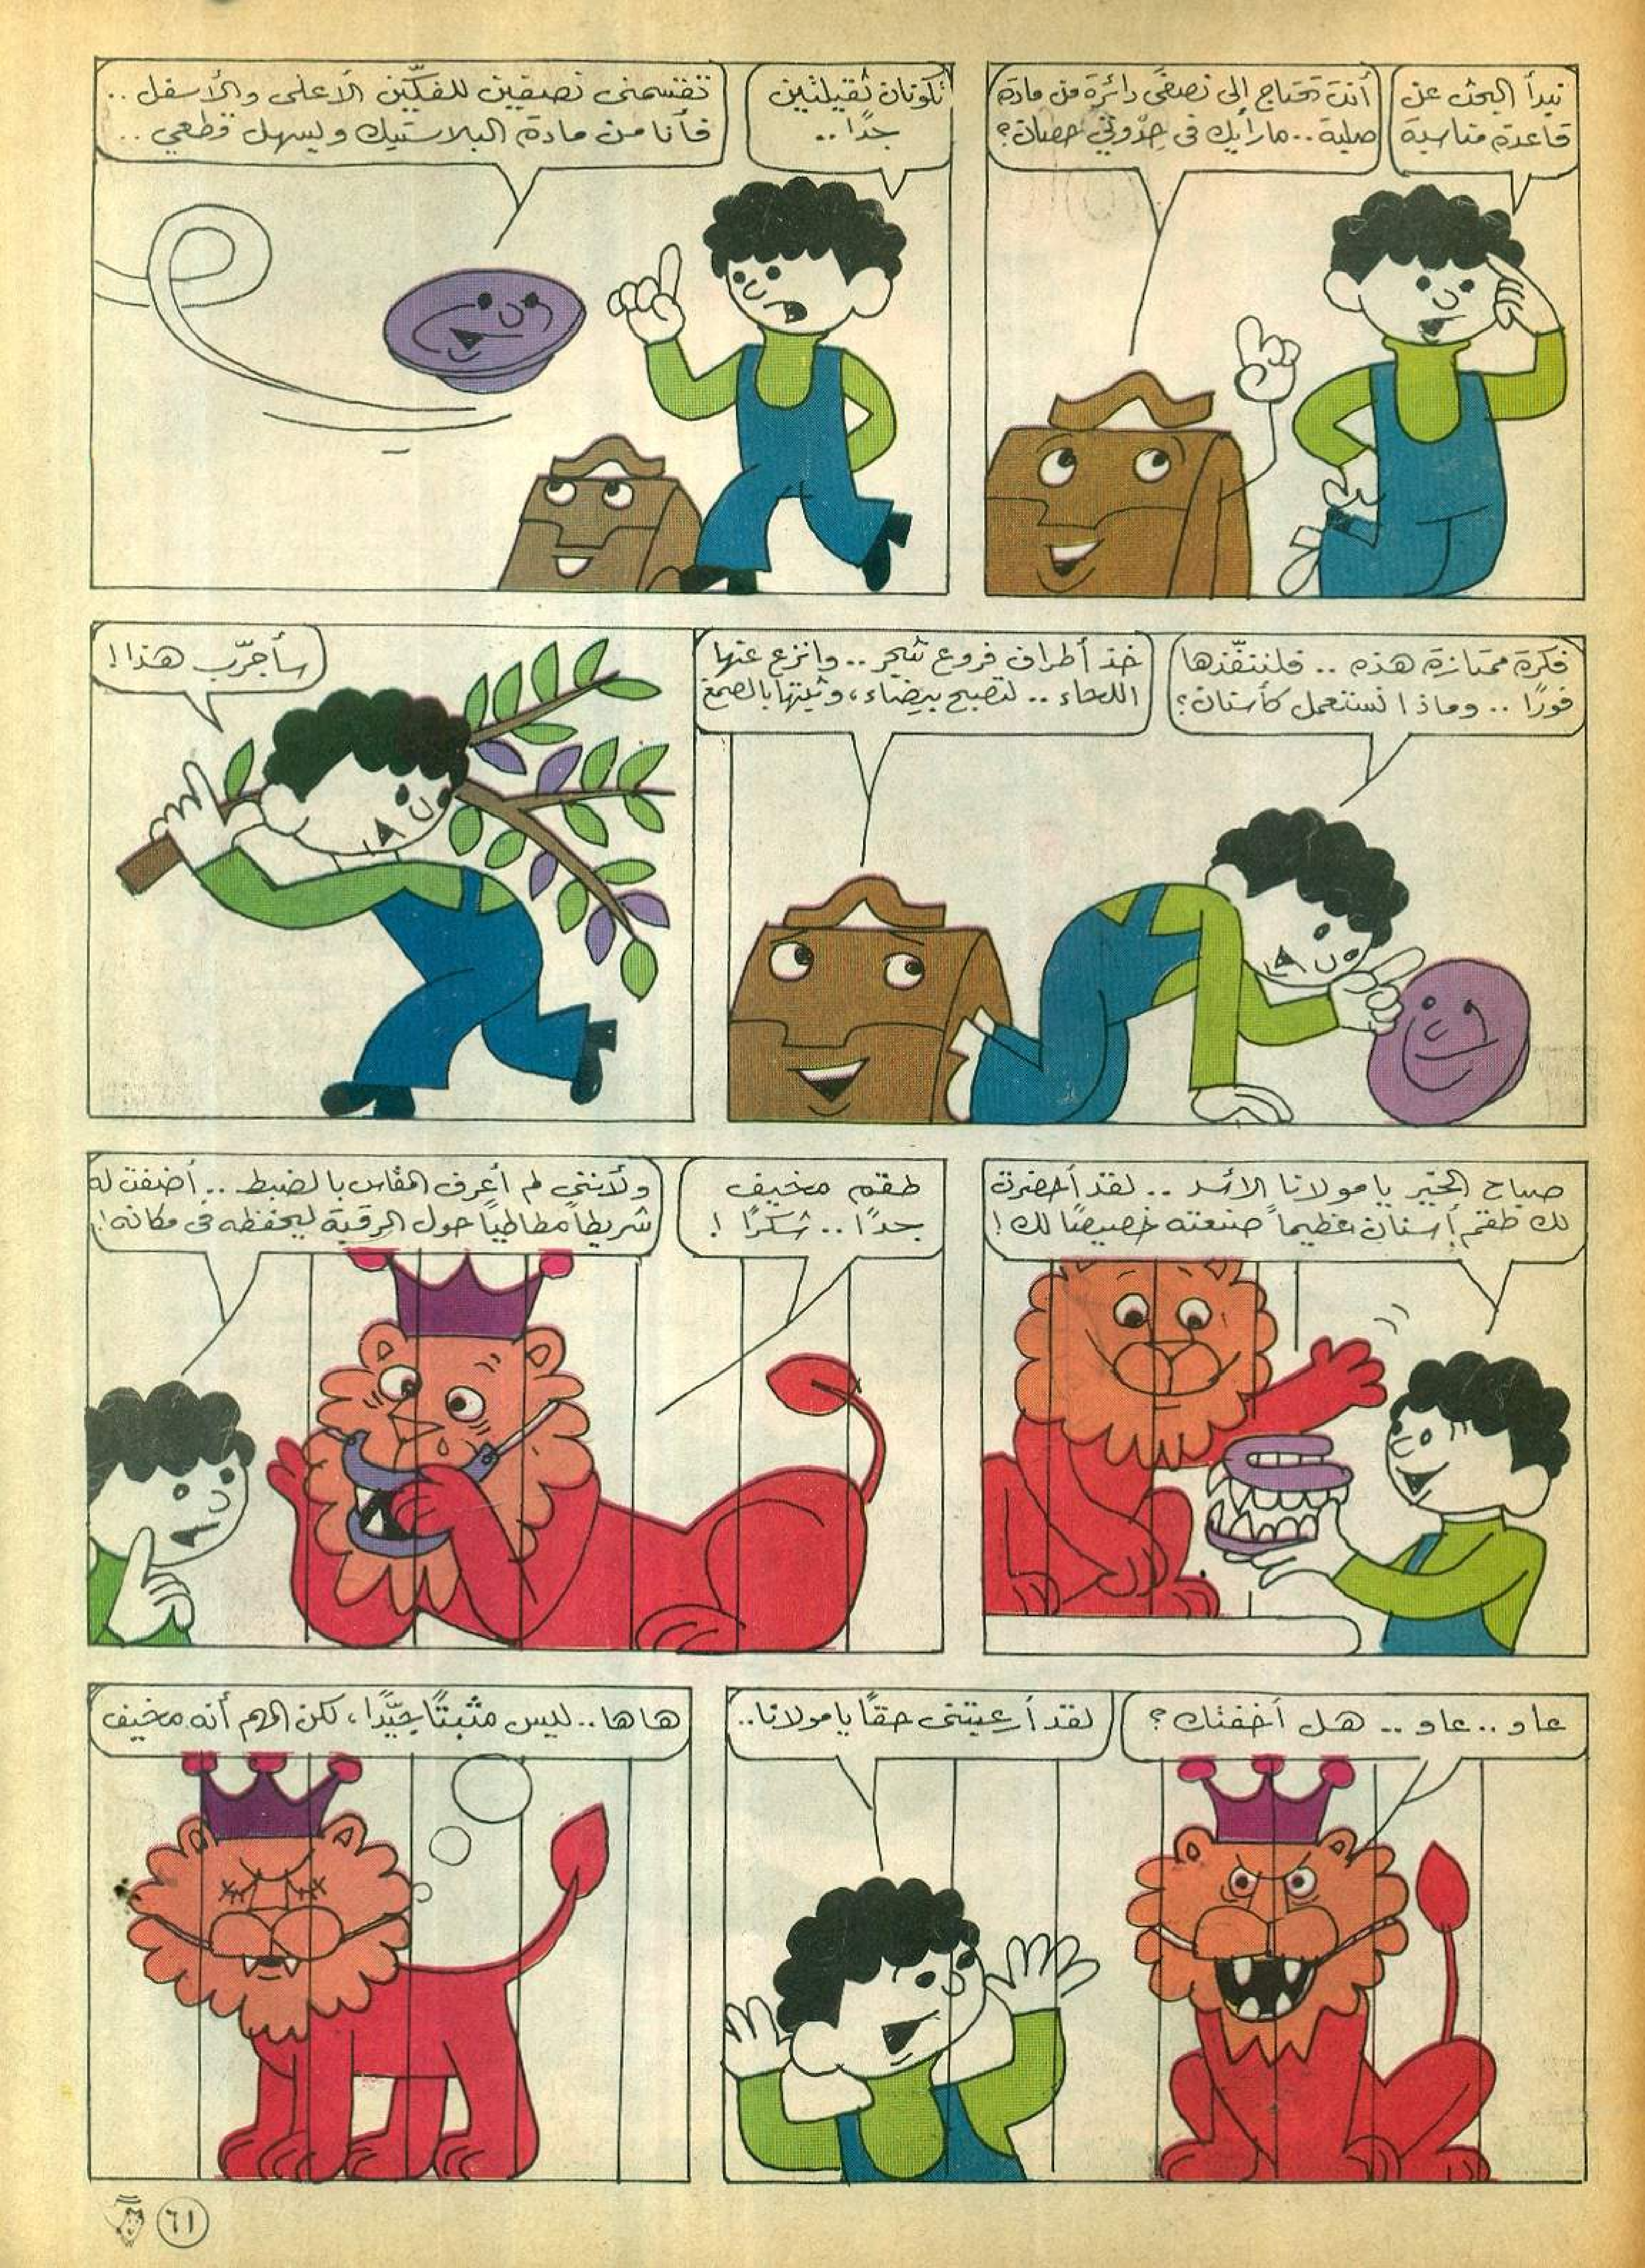 نبدأ البحث عن
قاعدة مناسبة
أنت تحتاج إلى نصفى دائرة من مادة
صلبة.. ما رأيك فى حِدْوتىْ حصان؟
تكونان ثقيلتين
جدًا..
تقسمنى نصفين للفكّين الأعلى والأسفل..
فأنا من مادة البلاستيك ويسهل قطعى..
فكرة ممتازة هذه.. فلننفّذها
فورًا.. وماذا نستعمل كأسنان؟
خذ أطراف فروع شجر.. وانزع عنها
اللحاء.. لتصبح بيضاء، وثبّتها بالصمغ
سأجرّب هذا!
صباح الخير يا مولانا الأسد.. لقد أحضرت
لك طقم أسنان عظيماً صنعته خصيصًا لك!
طقم مخيف
جدًا.. شكرًا!
ولأننى لم أعرف المقاس بالضبط.. أضفت له
شريطاً مطاطياً حول الرقبة ليحفظه فى مكانه!
عاو.. عاو.. هل أخفتك؟
لقد أرعبتنى حقاً يا مولانا..
هاها.. ليس مثبتًا جيّدًا، لكن المهم أنه مخيف
٦١